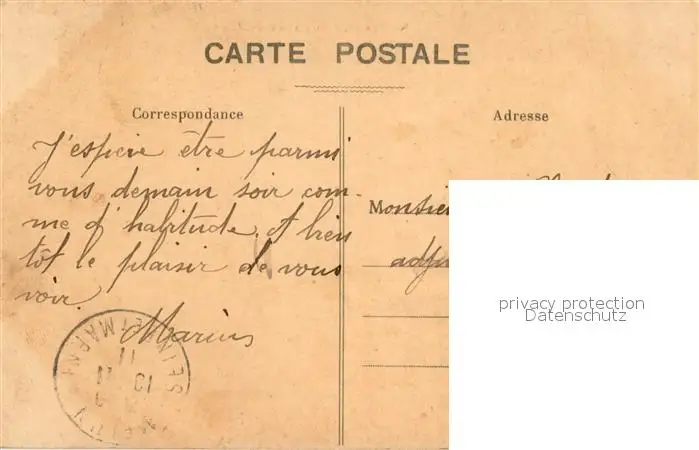 CARTE POSTALE
Correspondance
Adresse
J'espère être parmi
vous demain soir com-
me d'habitude. A bien
tôt le plaisir de vous
voir.
Marius
Monsieu
adju
privacy protection
Datenschutz